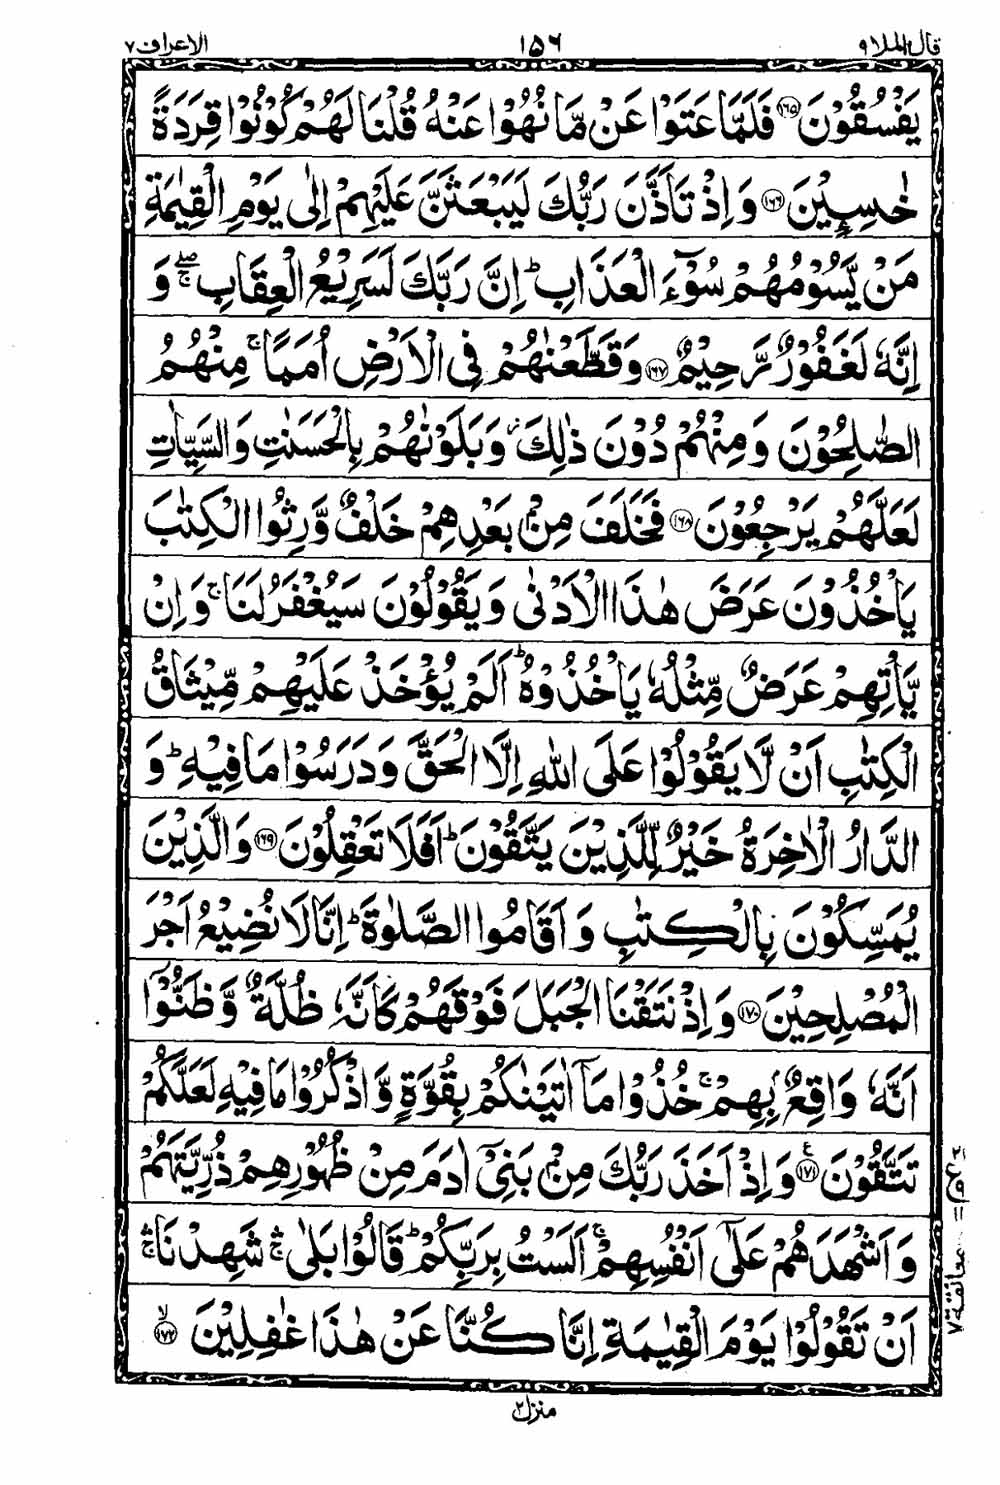 قال الملا ۹
۱۵۶
الاعراف ۷
يَفْسُقُوْنَ ۝۱۶۵ فَلَمَّا عَتَوْا عَنْ مَّا نُهُوْا عَنْهُ قُلْنَا لَهُمْ كُوْنُوْا قِرَدَةً
خٰسِـِٕيْنَ ۝۱۶۶ وَاِذْ تَاَذَّنَ رَبُّكَ لَيَبْعَثَنَّ عَلَيْهِمْ اِلٰى يَوْمِ الْقِيٰمَةِ
مَنْ يَّسُوْمُهُمْ سُوْٓءَ الْعَذَابِ ؕ اِنَّ رَبَّكَ لَسَرِيْعُ الْعِقَابِ ۖۚ وَ
اِنَّهٗ لَغَفُوْرٌ رَّحِيْمٌ ۝۱۶۷ وَقَطَّعْنٰهُمْ فِى الْاَرْضِ اُمَمًا ۚ مِنْهُمُ
الصّٰلِحُوْنَ وَمِنْهُمْ دُوْنَ ذٰلِكَ ؗ وَبَلَوْنٰهُمْ بِالْحَسَنٰتِ وَالسَّيِّاٰتِ
لَعَلَّهُمْ يَرْجِعُوْنَ ۝۱۶۸ فَخَلَفَ مِنْۢ بَعْدِهِمْ خَلْفٌ وَّرِثُوا الْكِتٰبَ
يَاْخُذُوْنَ عَرَضَ هٰذَا الْاَدْنٰى وَيَقُوْلُوْنَ سَيُغْفَرُ لَنَا ۚ وَاِنْ
يَّاْتِهِمْ عَرَضٌ مِّثْلُهٗ يَاْخُذُوْهُ ؕ اَلَمْ يُؤْخَذْ عَلَيْهِمْ مِّيْثَاقُ
الْكِتٰبِ اَنْ لَّا يَقُوْلُوْا عَلَى اللّٰهِ اِلَّا الْحَقَّ وَدَرَسُوْا مَا فِيْهِ ؕ وَ
الدَّارُ الْاٰخِرَةُ خَيْرٌ لِّلَّذِيْنَ يَتَّقُوْنَ ؕ اَفَلَا تَعْقِلُوْنَ ۝۱۶۹ وَالَّذِيْنَ
يُمَسِّكُوْنَ بِالْكِتٰبِ وَاَقَامُوا الصَّلٰوةَ ؕ اِنَّا لَا نُضِيْعُ اَجْرَ
الْمُصْلِحِيْنَ ۝۱۷۰ وَاِذْ نَتَقْنَا الْجَبَلَ فَوْقَهُمْ كَاَنَّهٗ ظُلَّةٌ وَّظَنُّوْٓا
اَنَّهٗ وَاقِعٌۢ بِهِمْ ۚ خُذُوْا مَآ اٰتَيْنٰكُمْ بِقُوَّةٍ وَّاذْكُرُوْا مَا فِيْهِ لَعَلَّكُمْ
تَتَّقُوْنَ ۝۱۷۱ ع وَاِذْ اَخَذَ رَبُّكَ مِنْۢ بَنِىْٓ اٰدَمَ مِنْ ظُهُوْرِهِمْ ذُرِّيَّتَهُمْ
وَاَشْهَدَهُمْ عَلٰٓى اَنْفُسِهِمْ ۚ اَلَسْتُ بِرَبِّكُمْ ؕ قَالُوْا بَلٰى ۛۚ شَهِدْنَا ۛۚ
اَنْ تَقُوْلُوْا يَوْمَ الْقِيٰمَةِ اِنَّا كُنَّا عَنْ هٰذَا غٰفِلِيْنَ ۝۱۷۲ ۙ
معانقة ۷
منزل ۲